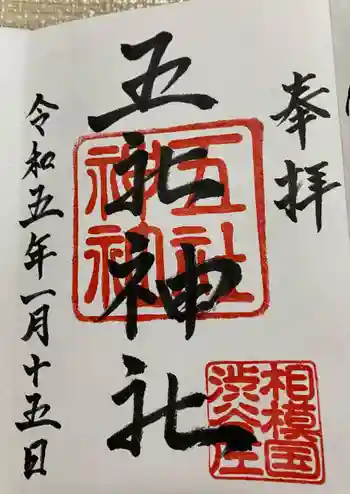 奉拝
五社神社
五社
神社
相模国
渋谷庄
令和五年一月十五日